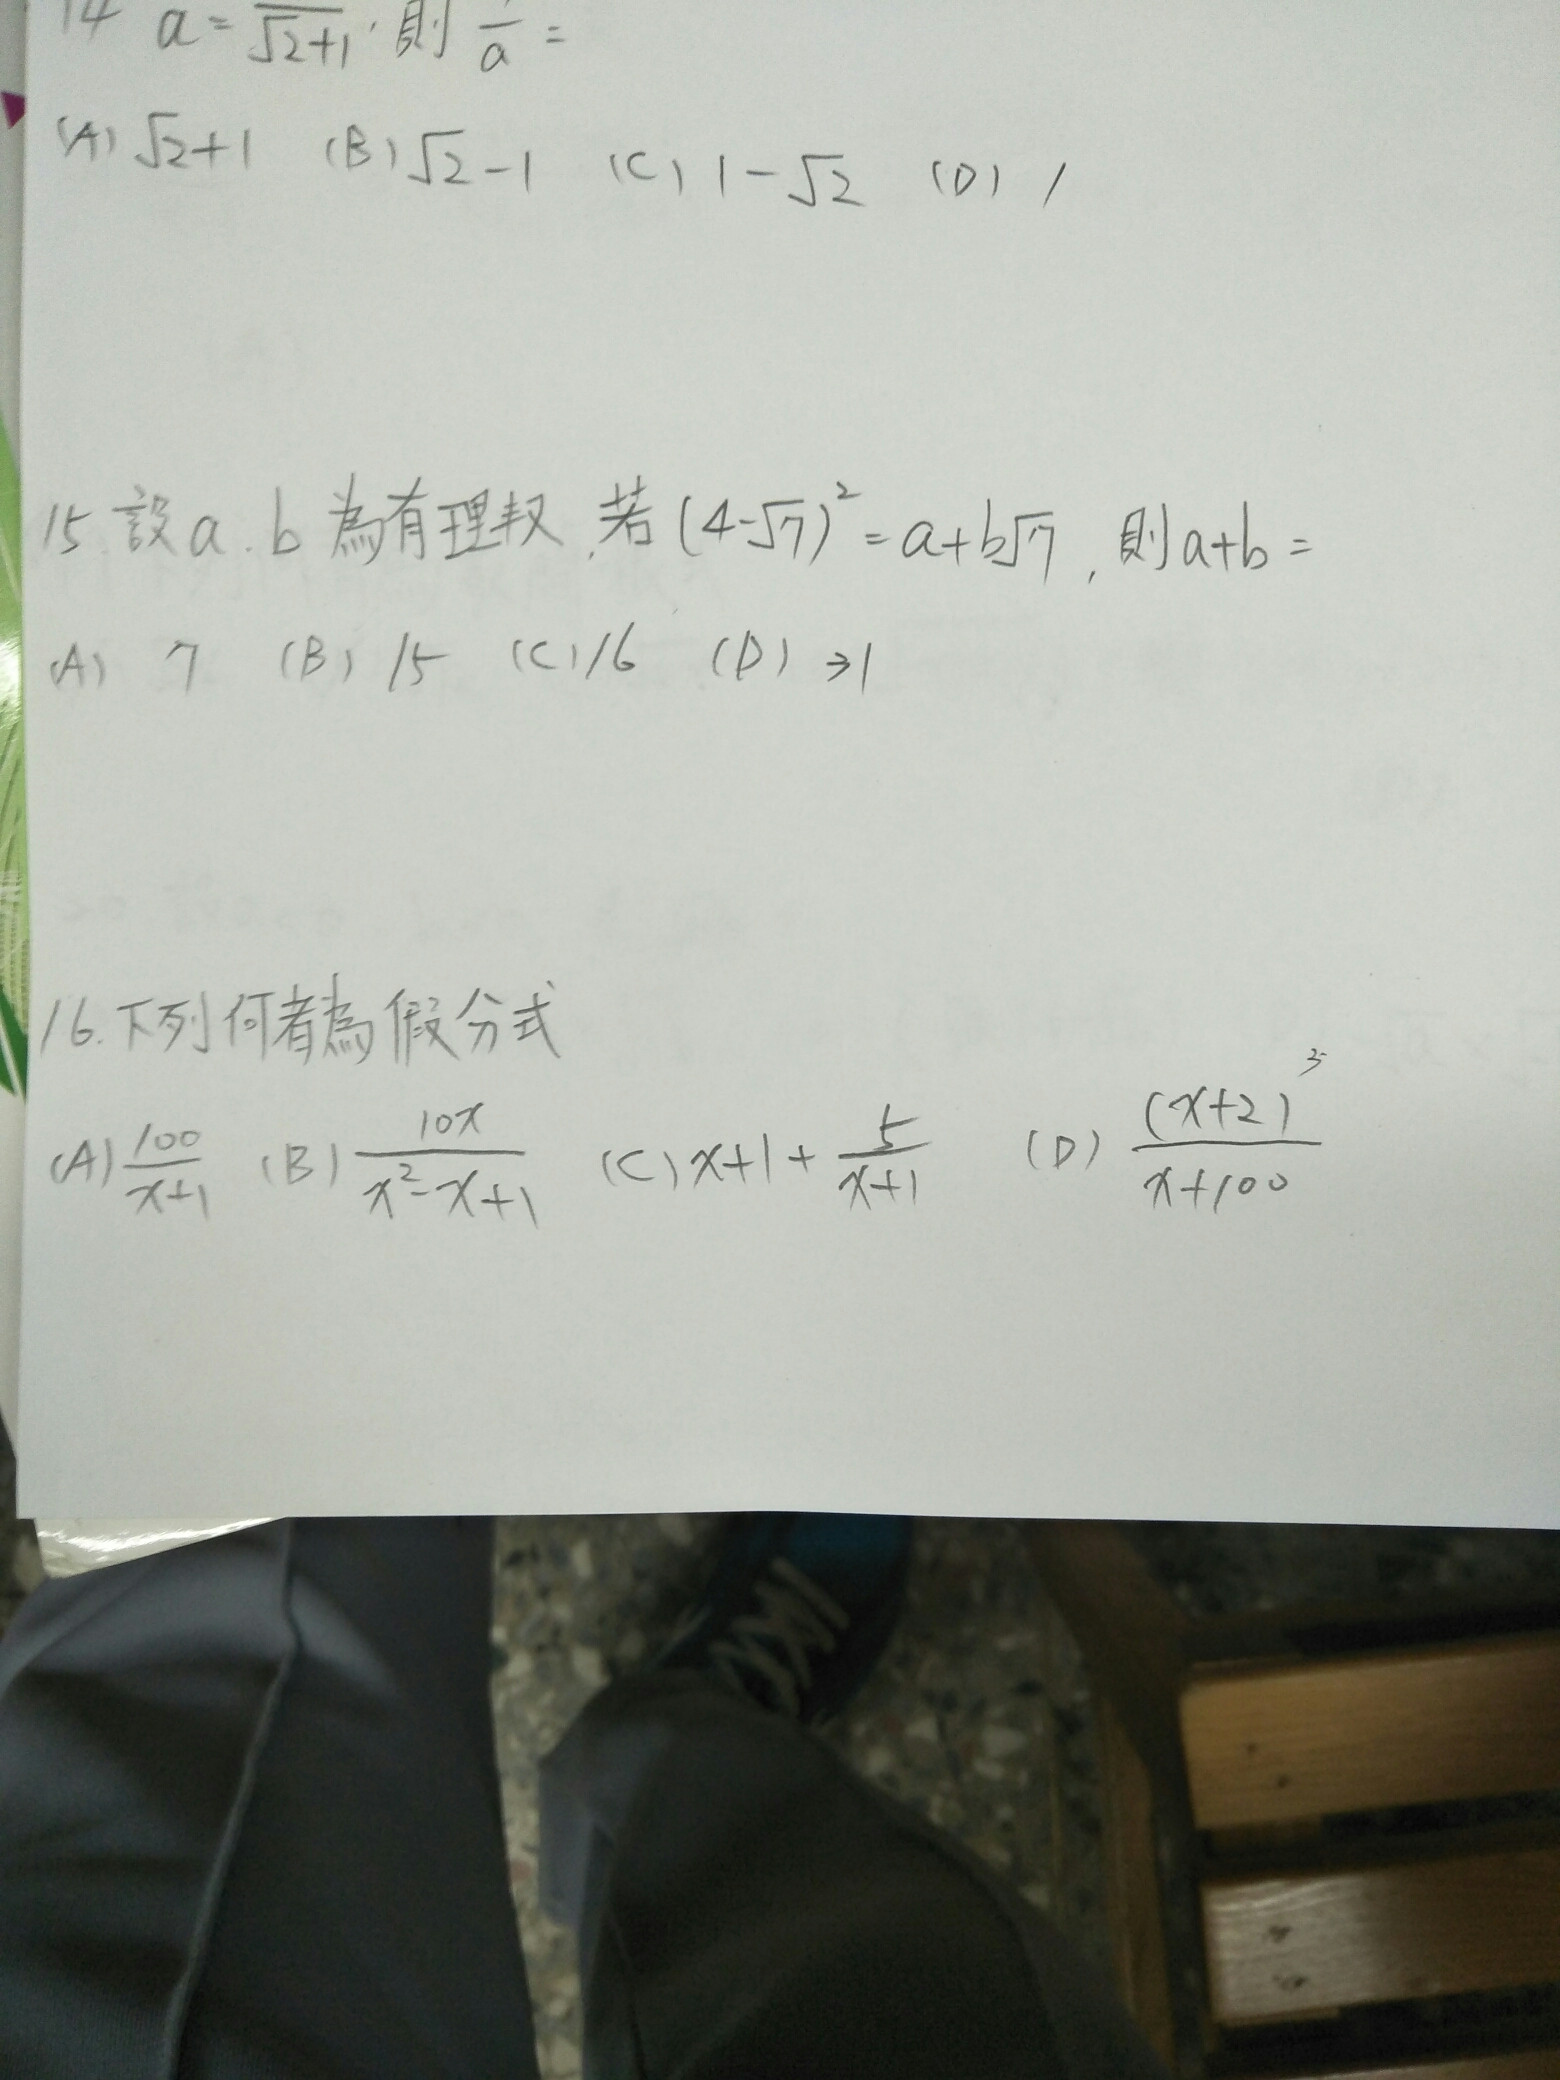 14 a = 1/√2+1, 則 1/a =
(A) √2+1 (B) √2-1 (C) 1-√2 (D) 1
15. 設a.b為有理数,若(4-√7)²=a+b√7, 則a+b=
(A) 7 (B) 15 (C) 16 (D) 31
16.下列何者為假分式
(A) 100/x+1 (B) 10x/x²-x+1 (C) x+1+5/x+1 (D) (x+2)³/x+100